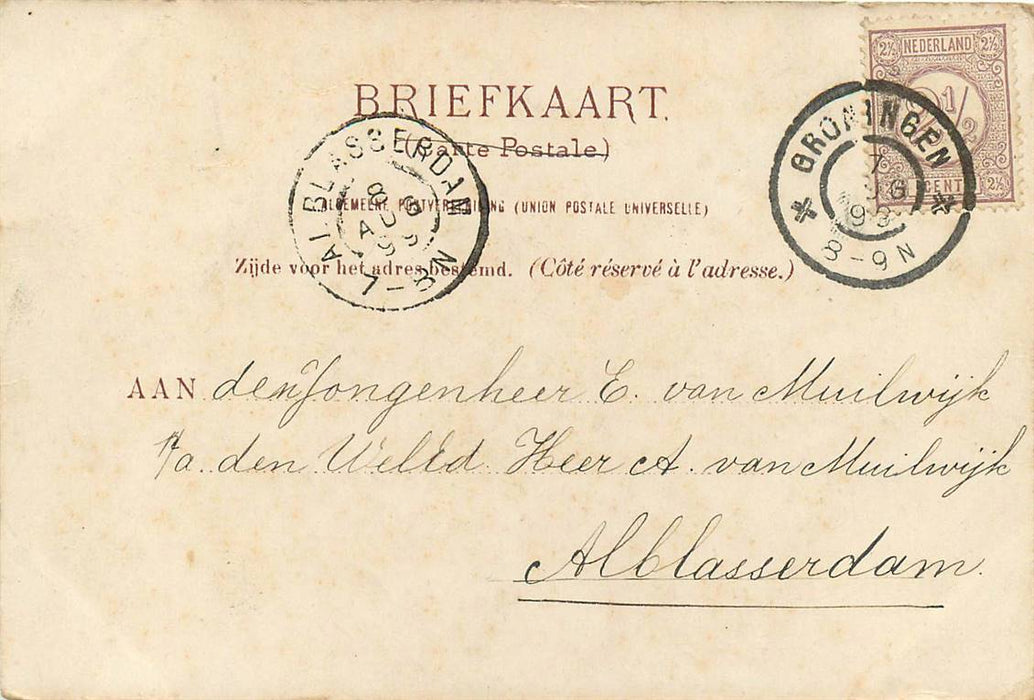 2½ NEDERLAND 2½
2½
CENT 2½
GRONINGEN
7
8-9N
BRIEFKAART.
(Carte Postale)
ALBLASSERDAM
8 AUG 99
7-8N
ALGEMEENE POSTVEREENIGING (UNION POSTALE UNIVERSELLE)
Zijde voor het adres bestemd. (Côté réservé à l'adresse.)
AAN den Jongenheer E. van Muilwijk
p/a. den WelEd. Heer A. van Muilwijk
Alblasserdam.